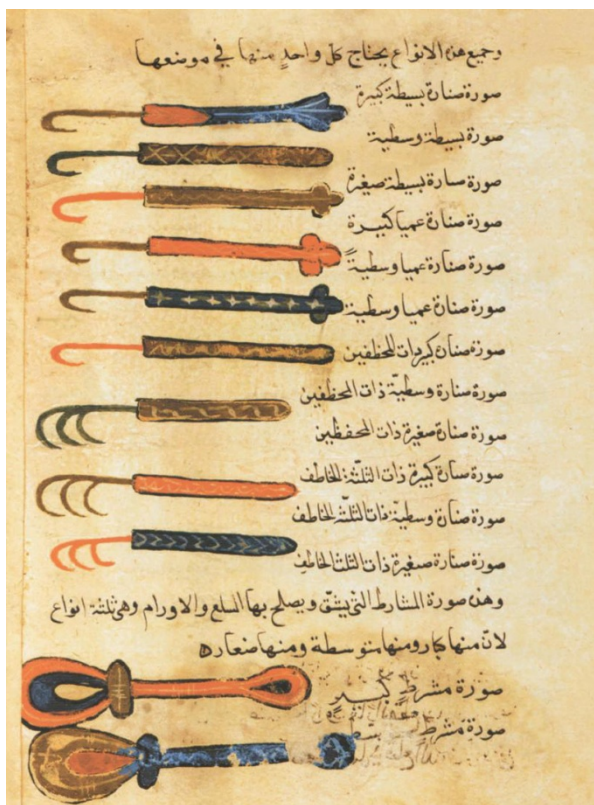 وجميع هذه الانواع يحتاج كل واحد منها في موضعها
صورة صنارة بسيطة كبيرة
صورة بسيطة وسطية
صورة صنارة بسيطة صغيرة
صورة صنارة عميا كبيرة
صورة صنارة عميا وسطيةً
صورة صنارة عميا وسطية
صورة صنارة كبيرة ذات المخطفين
صورة سنارة وسطيّة ذات المخطفين
صورة صنارة صغيرة ذات المخطفين
صورة سنارة كبيرة ذات الثلثة المخاطف
صورة صنارة وسطيّة ذات الثلثة المخاطف
صورة صنارة صغيرة ذات الثلث المخاطف
وهذه صورة المشارط التي يشق ويصلح بها السلع والاورام وهى ثلثة انواع
لانّ منها كبار ومنها متوسطة ومنها صغار
صورة مشرط كبير
صورة مشرط